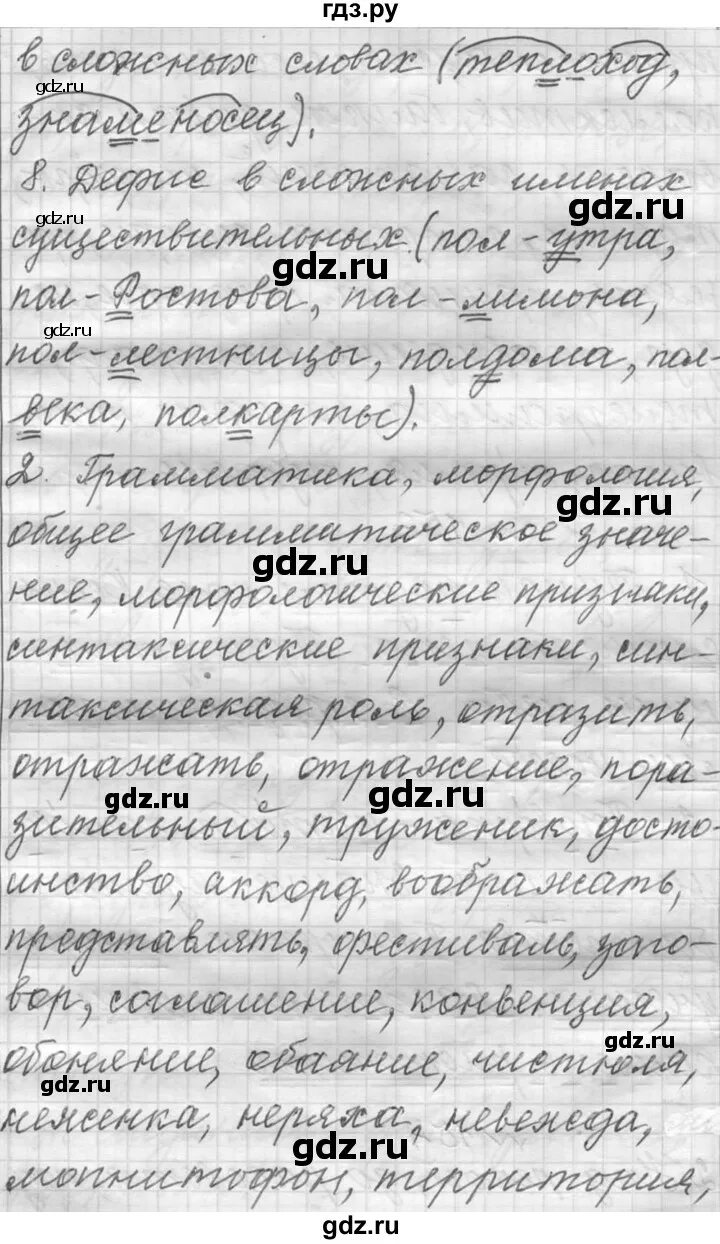 гдз.ру
в сложных словах (теплоход,
знаменосец).
8. Дефис в сложных именах
существительных (пол-утра,
пол-Ростова, пол-лимона,
пол-лестницы, полдома, пол-
века, полкарты).
2. Грамматика, морфология,
общее грамматическое значе-
ние, морфологические признаки,
синтаксические признаки, син-
таксическая роль, отразить,
отражать, отражение, пора-
зительный, труженик, досто-
инство, аккорд, воображать,
представлять, фестиваль, заго-
вор, соглашение, конвенция,
обоняние, обаяние, чистюля,
неженка, неряха, невежда,
магнитофон, территория,
gdz.ru